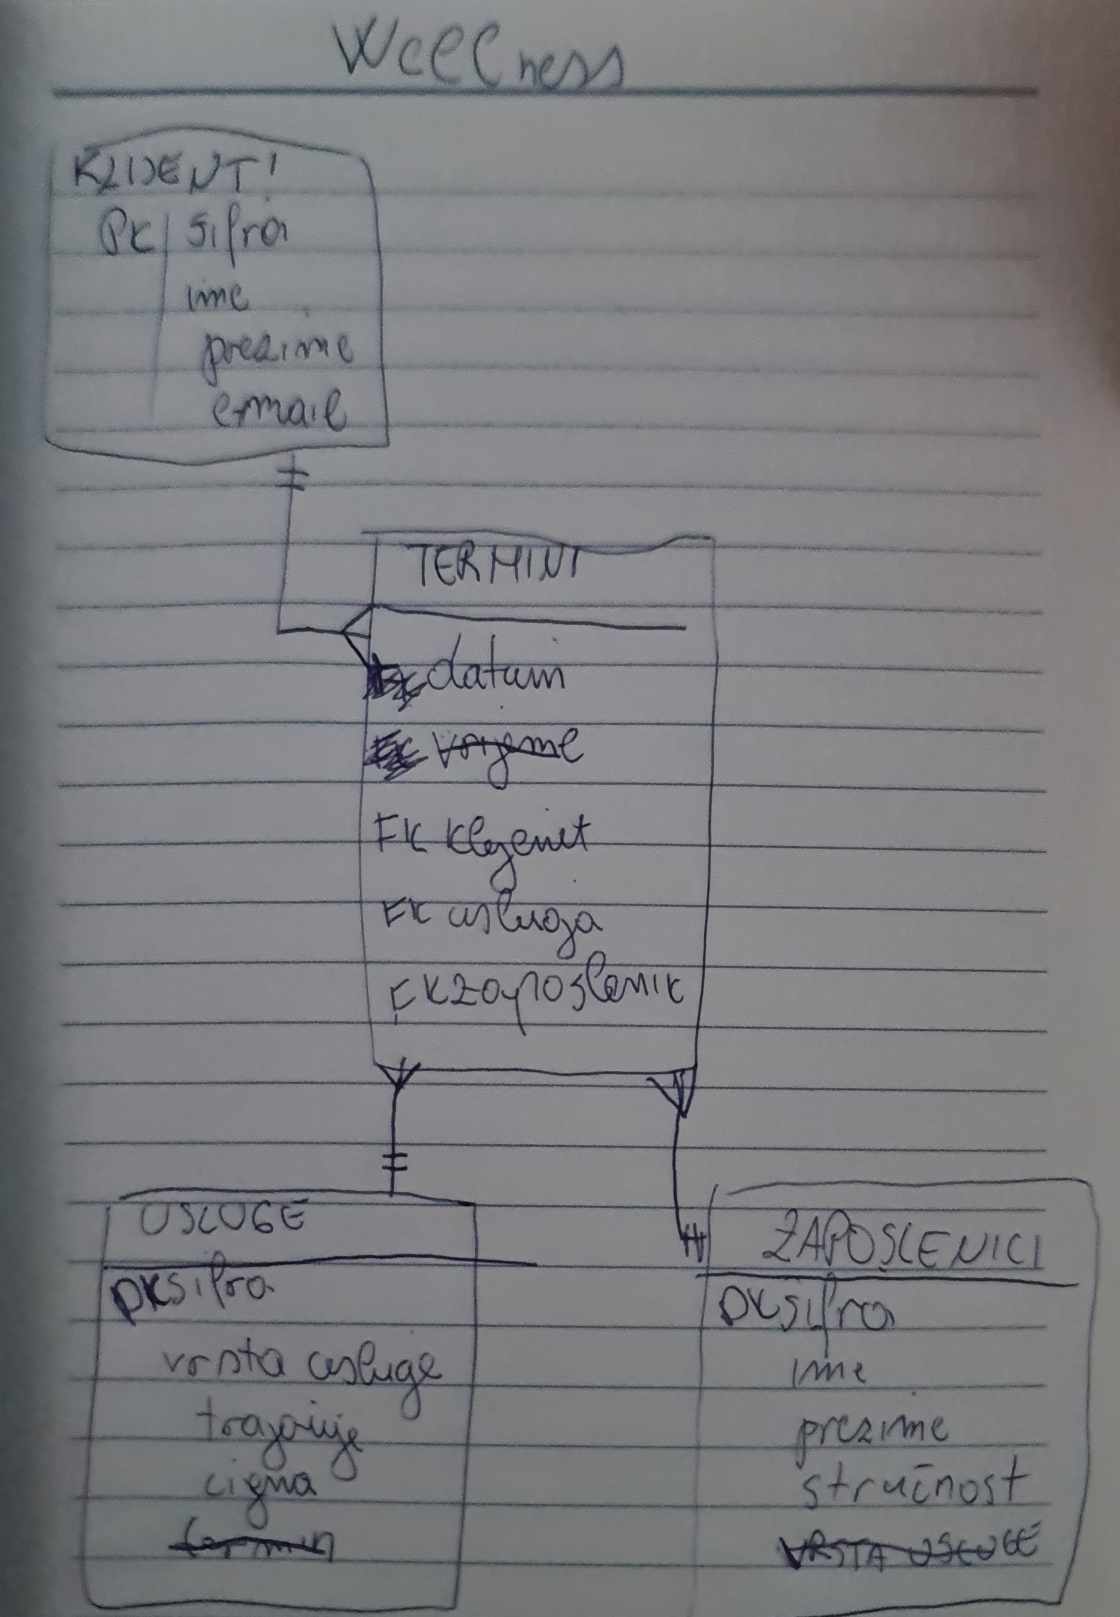 Wellness
KLIJENTI
PK šifra
ime
prezime
e-mail
TERMINI
datum
vrijeme
FK klijent
FK usluga
FK zaposlenik
USLUGE
PK šifra
vrsta usluge
trajanje
cijena
termin
ZAPOSLENICI
PK šifra
ime
prezime
stručnost
VRSTA USLUGE